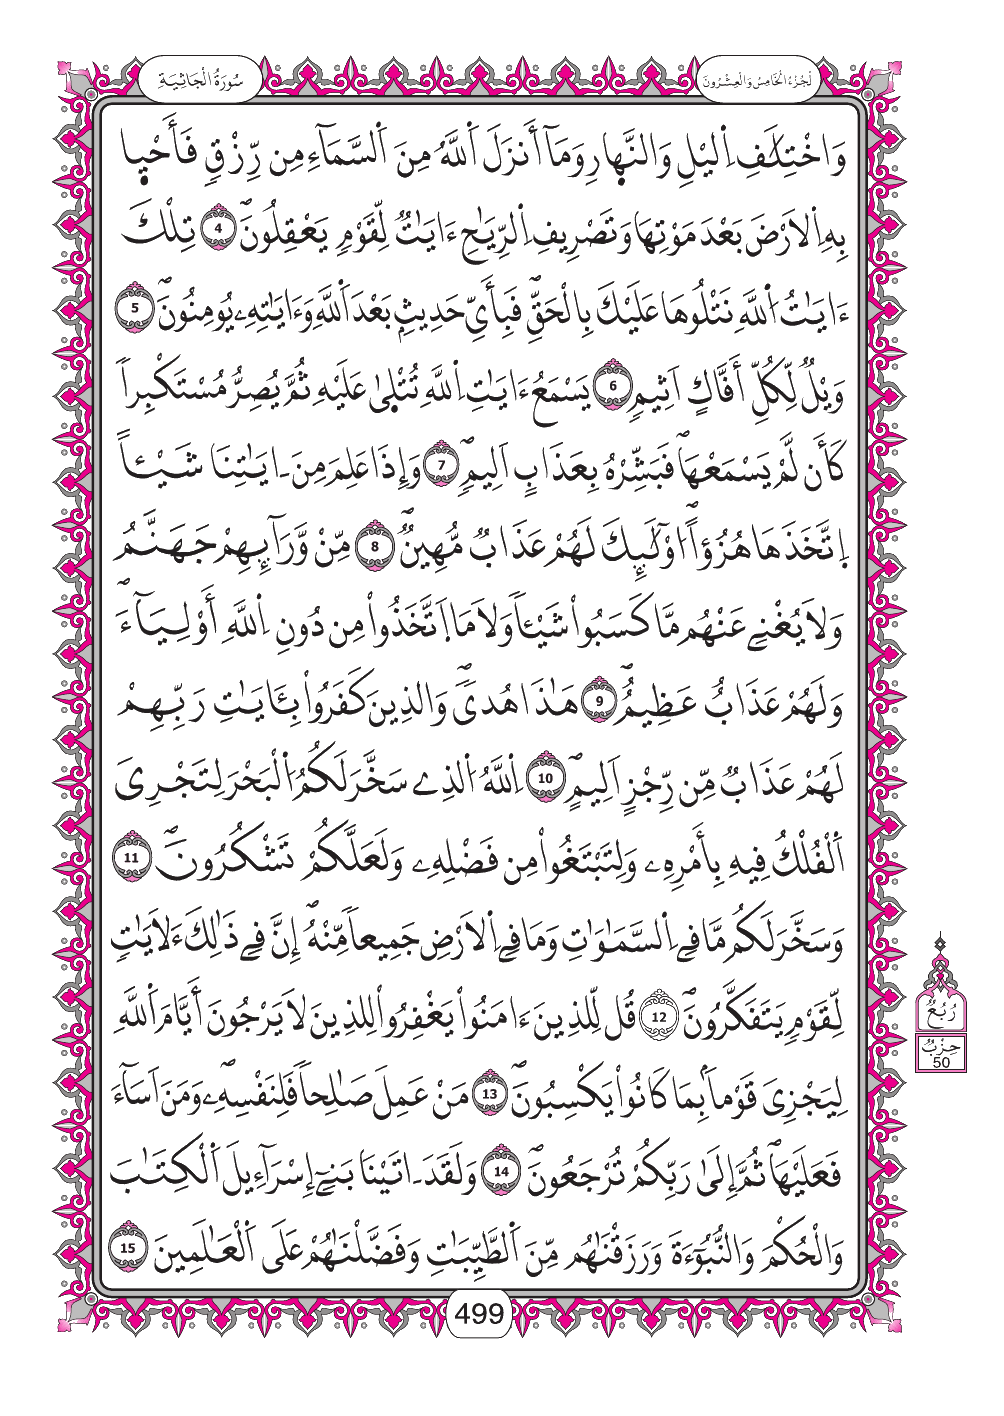 سُورَةُ الْجَاثِيَةِ
اَلْجُزْءُ الْخَامِسُ وَالْعِشْرُونَ
وَاخْتِلَٰفِ اِ۬ليْلِ وَالنَّه۪ارِ وَمَآ أَنزَلَ اَ۬للَّهُ مِنَ اَ۬لسَّمَآءِ مِن رِّزْقٖ فَأَحْي۪ا
بِهِ اِ۬لَارْضَ بَعْدَ مَوْتِهَا وَتَصْرِيفِ اِ۬لرِّيَٰحِ ءَايَٰتٞ لِّقَوْمٖ يَعْقِلُونَۖ 4 تِلْكَ
ءَايَٰتُ اُ۬للَّهِ نَتْلُوهَا عَلَيْكَ بِالْحَقِّۖ فَبِأَيِّ حَدِيثِۢ بَعْدَ اَ۬للَّهِ وَءَايَٰتِهِۦ يُومِنُونَۖ 5
وَيْلٞ لِّكُلِّ أَفَّاكٍ اَثِيمٖ 6 يَسْمَعُ ءَايَٰتِ اِ۬للَّهِ تُتْل۪يٰ عَلَيْهِ ثُمَّ يُصِرُّ مُسْتَكْبِراٗ
كَأَن لَّمْ يَسْمَعْهَاۖ فَبَشِّرْهُ بِعَذَابٍ اَلِيمٖۖ 7 وَإِذَا عَلِمَ مِنَ ـ ايَٰتِنَا شَيْـٔاً
اِ۪تَّخَذَهَا هُزُؤاًۖ ا۟وْلَٰٓئِكَ لَهُمْ عَذَابٞ مُّهِينٞۖ 8 مِّنْ وَّرَآئِهِمْ جَهَنَّمُۖ
وَلَا يُغْنِے عَنْهُم مَّا كَسَبُواْ شَيْـٔاٗ وَلَا مَا اَ۪تَّخَذُواْ مِن دُونِ اِ۬للَّهِ أَوْلِيَآءَ
وَلَهُمْ عَذَابٌ عَظِيمٌۖ 9 هَٰذَا هُدىٗۖ وَالذِينَ كَفَرُواْ بِـَٔايَٰتِ رَبِّهِمْ
لَهُمْ عَذَابٞ مِّن رِّجْزٍ اَلِيمٖ 10 اِ۬للَّهُ اُ۬لذِے سَخَّرَ لَكُمُ اُ۬لْبَحْرَ لِتَجْرِىَ
اَ۬لْفُلْكُ فِيهِ بِأَمْرِهِۦ وَلِتَبْتَغُواْ مِن فَضْلِهِۦ وَلَعَلَّكُمْ تَشْكُرُونَۖ 11
وَسَخَّرَ لَكُم مَّا فِے اِ۬لسَّمَٰوَٰتِ وَمَا فِے اِ۬لَارْضِ جَمِيعاٗ مِّنْهُۖ إِنَّ فِے ذَٰلِكَ ءَلَايَٰتٖ
لِّقَوْمٖ يَتَفَكَّرُونَۖ 12 قُل لِّلذِينَ ءَامَنُواْ يَغْفِرُواْ لِلذِينَ لَا يَرْجُونَ أَيَّامَ اَ۬للَّهِ
لِيَجْزِىَ قَوْماَۢ بِمَا كَانُواْ يَكْسِبُونَۖ 13 مَنْ عَمِلَ صَٰلِحاٗ فَلِنَفْسِهِۦۖ وَمَنَ اَسَآءَ
فَعَلَيْهَاۖ ثُمَّ إِلَىٰ رَبِّكُمْ تُرْجَعُونَۖ 14 وَلَقَدَ ـ اتَيْنَا بَنِےٓ إِسْرَآءِيلَ اَ۬لْكِتَٰبَ
وَالْحُكْمَ وَالنُّبُوٓءَةَ وَرَزَقْنَٰهُم مِّنَ اَ۬لطَّيِّبَٰتِ وَفَضَّلْنَٰهُمْ عَلَى اَ۬لْعَٰلَمِينَ 15
رُبُعُ
حِزْبُ
50
499